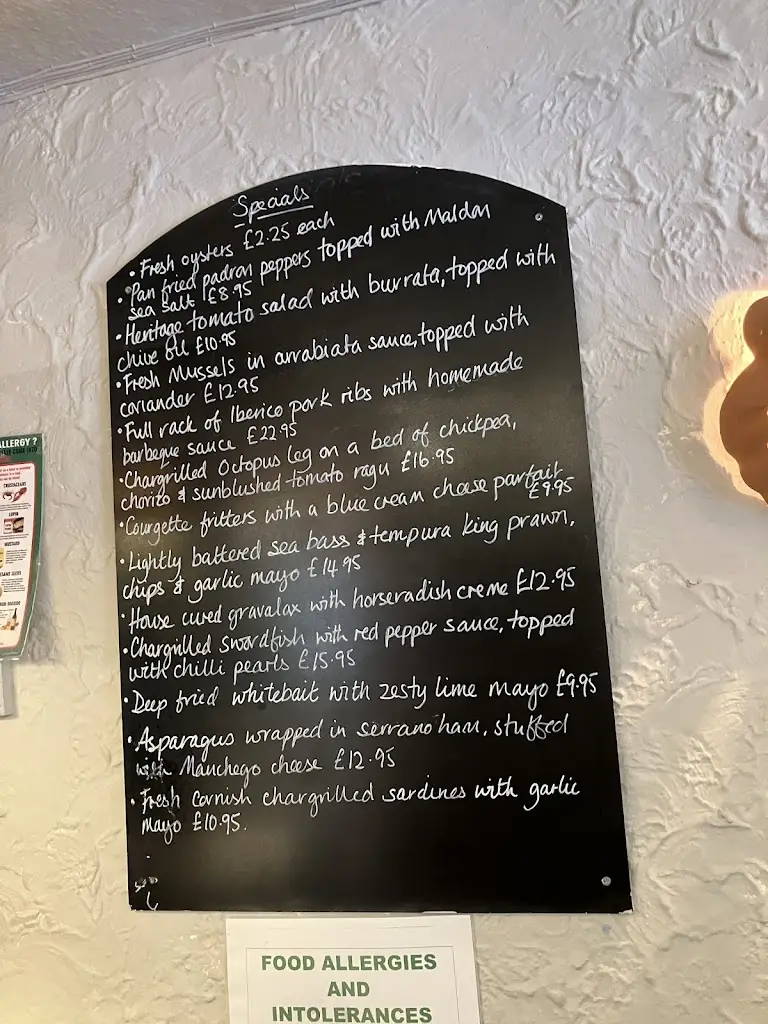 Specials
• Fresh oysters £2.25 each
• Pan fried padron peppers topped with Maldon
sea salt £8.95
• Heritage tomato salad with burrata, topped with
chive oil £10.95
• Fresh Mussels in arrabiata sauce, topped with
coriander £12.95
• Full rack of Iberico pork ribs with homemade
barbeque sauce £22.95
• Chargrilled Octopus leg on a bed of chickpea,
chorizo & sunblushed tomato ragu £16.95
• Courgette fritters with a blue cream chese parfait
£9.95
• Lightly battered sea bass & tempura king prawn,
chips & garlic mayo £14.95
• House cured gravalax with horseradish creme £12.95
• Chargrilled swordfish with red pepper sauce, topped
with chilli pearls £15.95
• Deep fried whitebait with zesty lime mayo £9.95
• Asparagus wrapped in serrano ham, stuffed
with Manchego cheese £12.95
• Fresh Cornish chargrilled sardines with garlic
mayo £10.95.
ALLERGY ?
CRUSTACEANS
LUPIN
MUSTARD
FOOD ALLERGIES
AND
INTOLERANCES